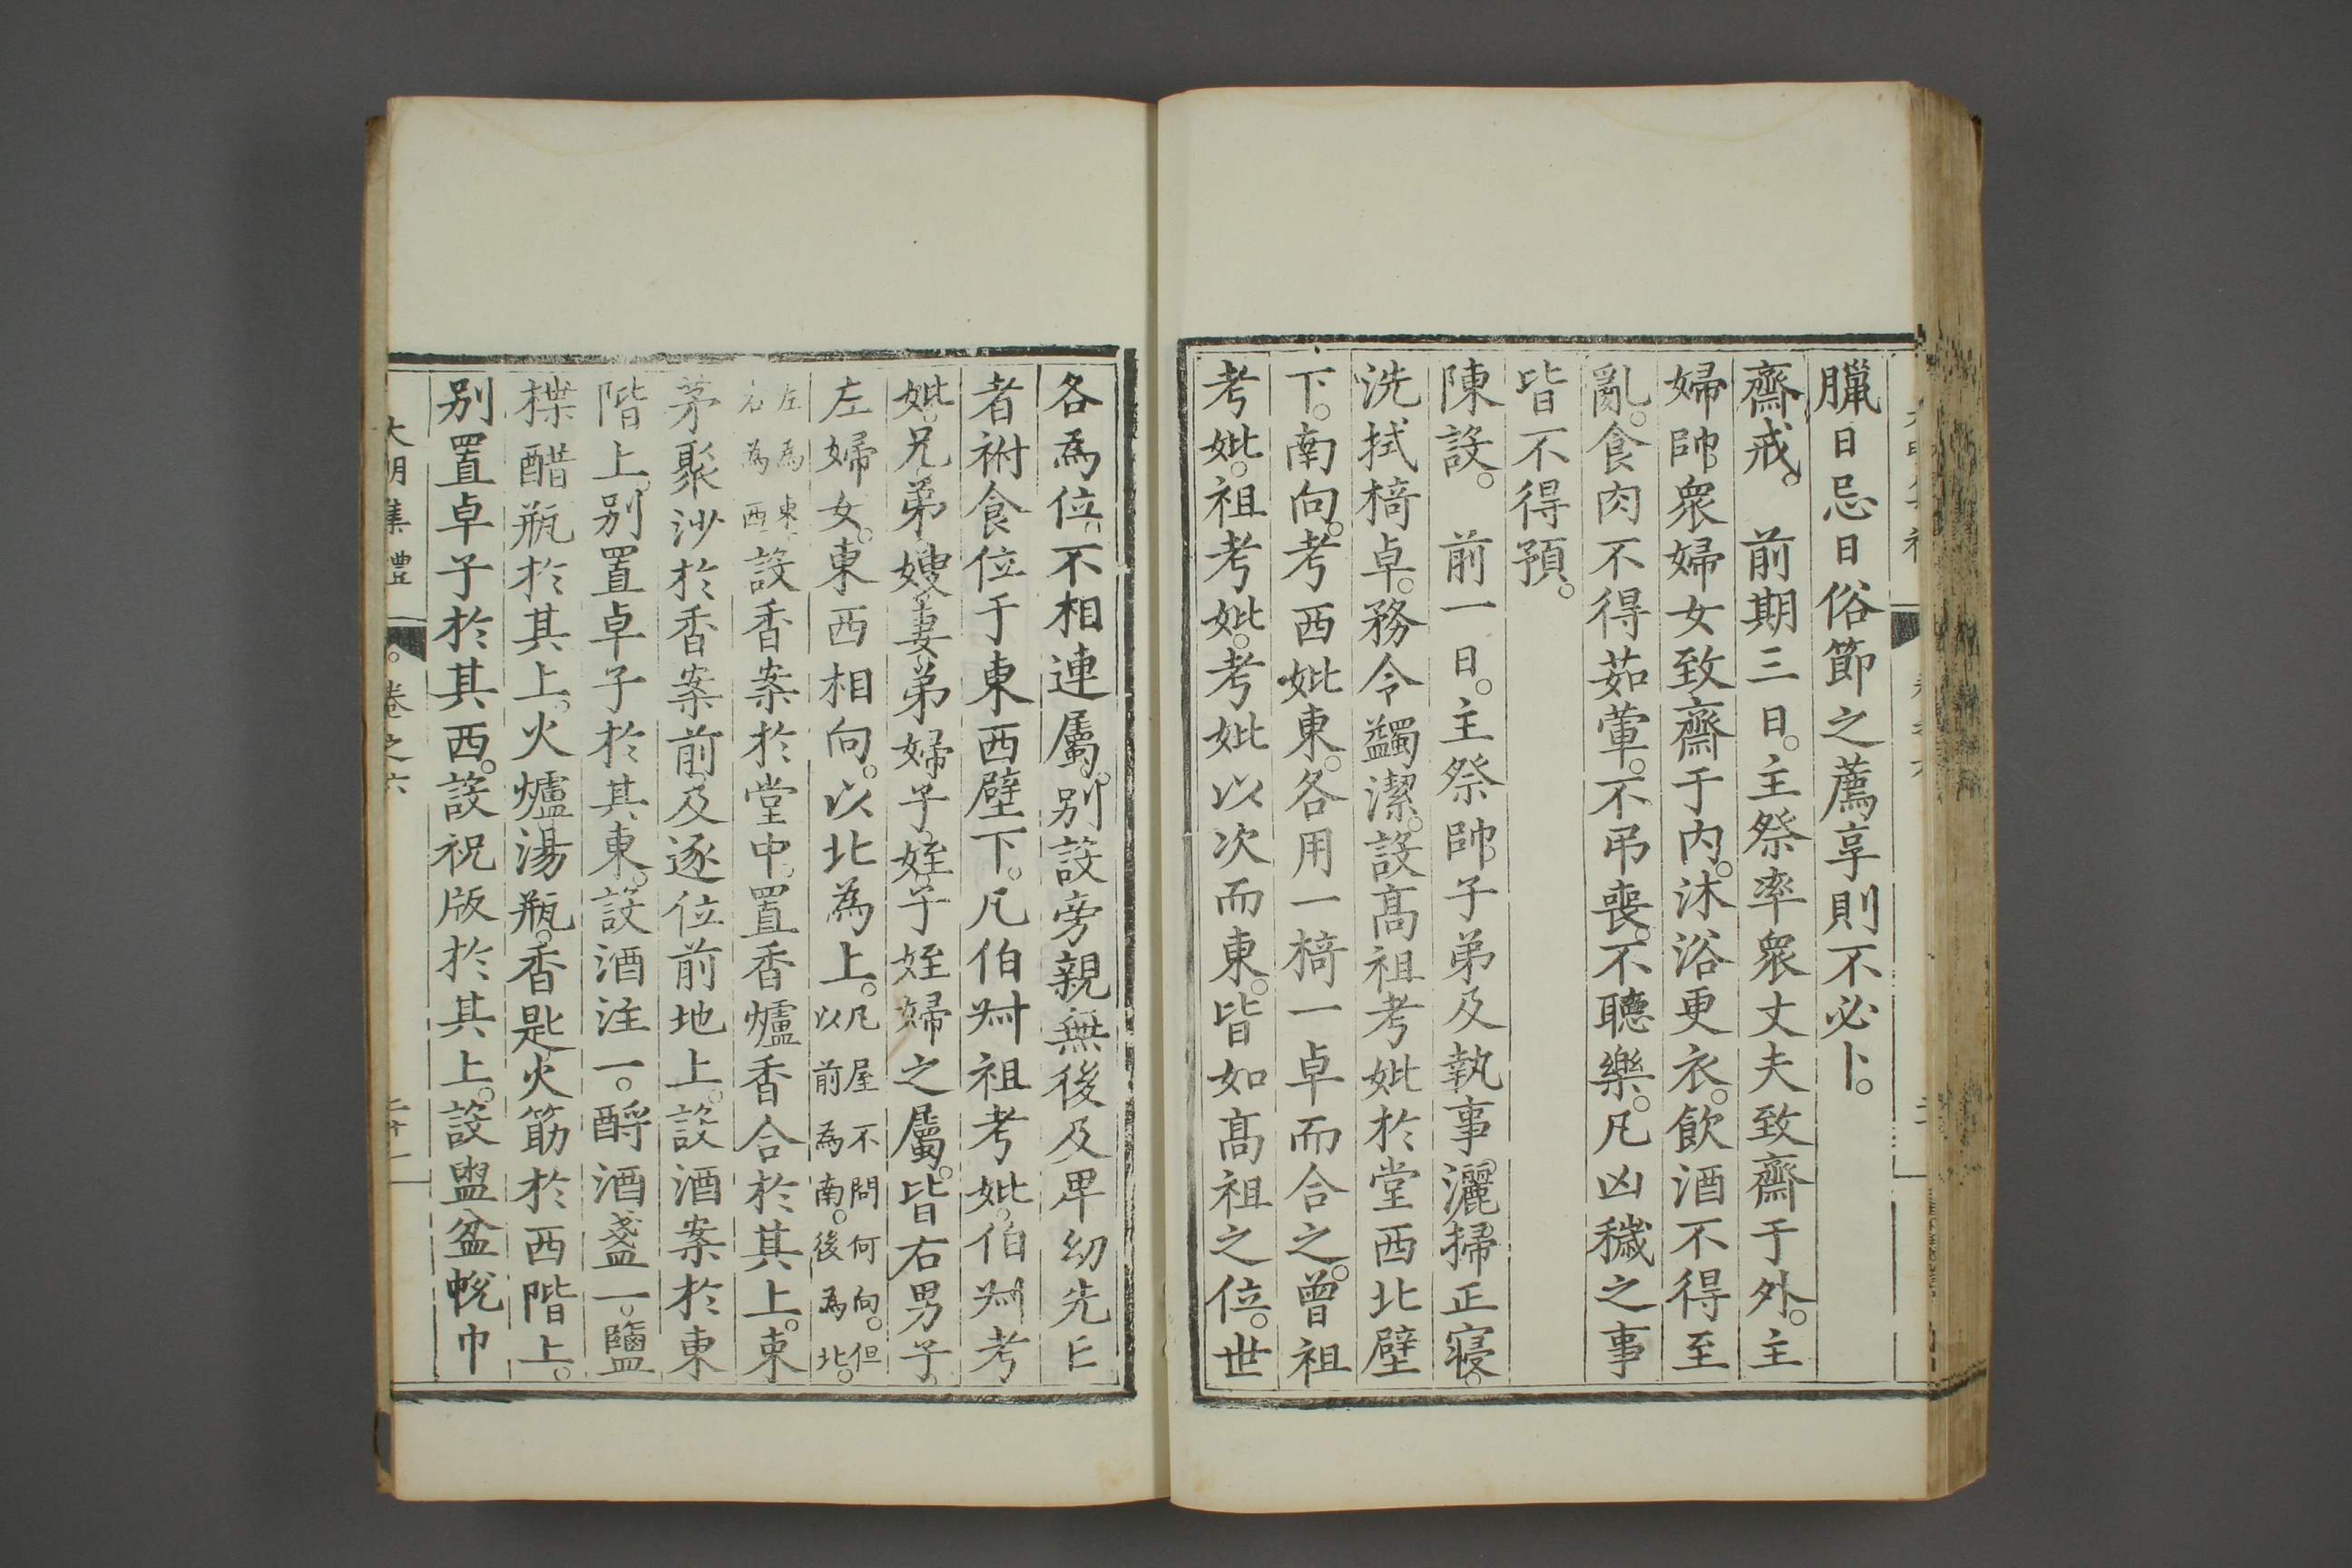 臘日忌日俗節之薦享則不必卜。
齋戒。　前期三日。主祭率衆丈夫致齋于外。主
婦帥衆婦女致齋于内。沐浴更衣。飲酒不得至
亂。食肉不得茹葷。不弔喪。不聽樂。凡凶穢之事
皆不得預。
陳設。　前一日。主祭帥子弟及執事。灑掃正寢。
洗拭椅卓。務令蠲潔。設髙祖考妣於堂西北壁
下。南向。考西妣東。各用一椅一卓而合之。曾祖
考妣。祖考妣。考妣以次而東。皆如髙祖之位。世
各爲位。不相連屬。别設旁親無後及畢幼先亡
者祔食位于東西壁下。凡伯叔祖考妣。伯叔考
妣。兄弟嫂妻弟婦子姪子姪婦之屬。皆右男子
左婦女。東西相向。以北為上。凡屋不問何向。但
以前為南。後為北。
左為東
右為西
設香案於堂中。置香爐香合於其上。束
茅聚沙於香案前。及逐位前地上。設酒案於東
階上。别置卓子於其東。設酒注一。酹酒盞一。鹽
楪醋瓶於其上。火爐湯瓶。香匙火筯於西階上。
别置卓子於其西。設祝版於其上。設盥盆帨巾
大明集禮　卷之六